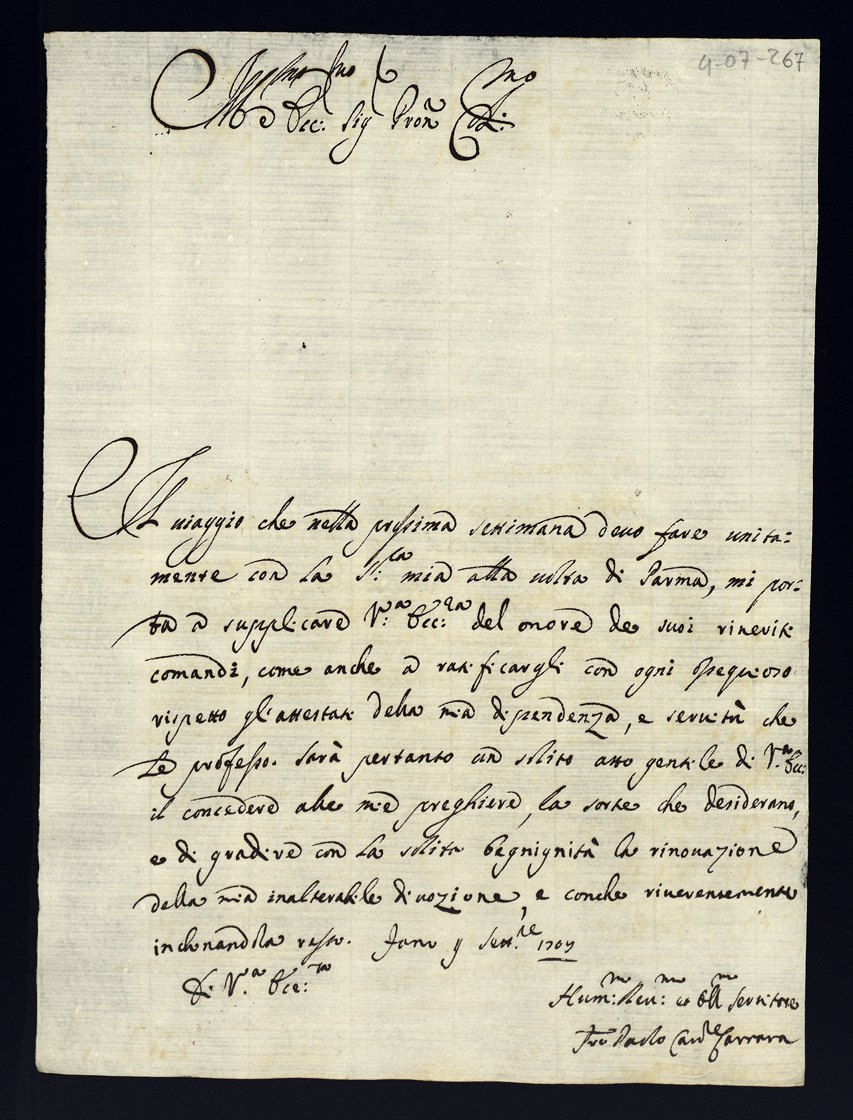 4-07-267
Ill:mo et Ecc: Sig Pron Col:mo
Il uiaggio che nella prossima settimana deuo fare unita=
mente con la S:ra mia alla uolta di Parma, mi por=
ta a supplicare V:a Ecc:za del onore de suoi riueriti
comandi, come anche a ratificargli con ogni ossequioso
rispetto gl'attestati della mia dipendenza, e seruitù che
Le professo. Sarà pertanto un solito atto gentile di V:a Ecc:
il concedere alle mie preghiere, la sorte che desiderano,
e di gradire con la solita begnignità la rinouazione
della mia inalterabile diuozione, e con che riuerentemente
inchinandola resto. Fano 9 Sett:re 1707
Di V:a Ecc:za
Hum:mo Reu:mo et Obl:mo Seruitore
Paolo Carrara